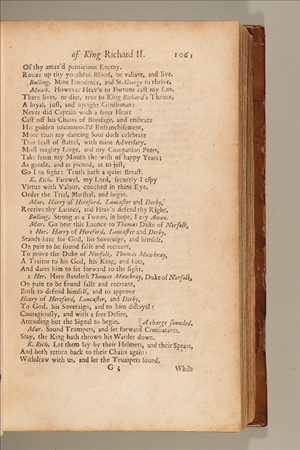 of King Richard II. 1061
Of thy amaz'd pernicious Enemy.
Rouze up thy youthful Blood, be valiant, and live.
Bulling. Mine Innocence, and St. George to thrive.
Mowb. However Heav'n or Fortune cast my Lot,
There lives, or dies, true to King Richard's Throne,
A loyal, just, and upright Gentleman:
Never did Captive with a freer Heart
Cast off his Chains of Bondage, and embrace
His golden uncontroul'd Enfranchisement,
More than my dancing Soul doth celebrate
This Feast of Battel, with mine Adversary.
Most mighty Liege, and my Companion Peers,
Take from my Mouth the wish of happy Years;
As gentle, and as jocond, as to jest,
Go I to fight: Truth hath a quiet Breast.
K. Rich. Farewel, my Lord, securely I espy
Virtue with Valour, couched in thine Eye.
Order the Trial, Marshal, and begin.
Mar. Harry of Hereford, Lancaster and Derby,
Receive thy Launce, and Heav'n defend thy Right.
Bulling. Strong as a Tower, in hope, I cry Amen.
Mar. Go bear this Launce to Thomas Duke of Norfolk.
1 Her. Harry of Hereford, Lancaster and Derby,
Stands here for God, his Soveraign, and himself,
On pain to be found false and recreant,
To prove the Duke of Norfolk, Thomas Mowbray,
A Traitor to his God, his King, and him,
And dares him to set forward to the fight.
2 Her. Here standeth Thomas Mowbray, Duke of Norfolk,
On pain to be found false and recreant,
Both to defend himself, and to approve
Henry of Hereford, Lancaster, and Derby,
To God, his Soveraign, and to him disloyal:
Couragiously, and with a free Desire,
Attending but the Signal to begin. [A charge sounded.
Mar. Sound Trumpets, and set forward Combatants.
Stay, the King hath thrown his Warder down.
K. Rich. Let them lay by their Helmets, and their Spears,
And both return back to their Chairs again:
Withdraw with us, and let the Trumpets sound,
G 3 While